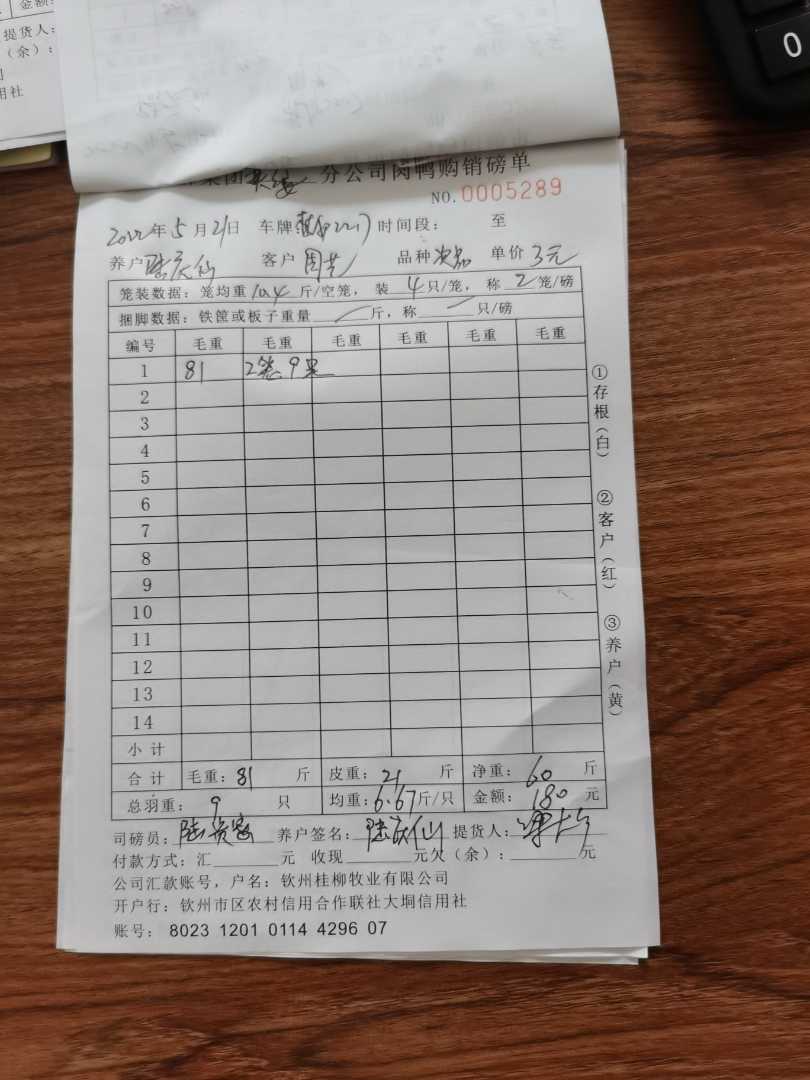 金额:
提货人:
(余):
用社
0
集团 分公司肉鸭购销磅单
NO.0005289
2022年5月21日 车牌 时间段: 至
养户 陆庆仙 客户 周艺 品种 次品 单价 3元
笼装数据: 笼均重 10.4 斤/空笼, 装 4 只/笼, 称 2 笼/磅
捆脚数据: 铁筐或板子重量 / 斤, 称 / 只/磅
编号 毛重 毛重 毛重 毛重 毛重 毛重
1 81 2笼9只
2
3
4
5
6
7
8
9
10
11
12
13
14
小计
合计 毛重: 81 斤 皮重: 21 斤 净重: 60 斤
总羽重: 9 只 均重: 6.67斤/只 金额: 180 元
司磅员: 养户签名: 陆庆仙 提货人:
付款方式: 汇 元 收现 元欠(余): 元
公司汇款账号, 户名: 钦州桂柳牧业有限公司
开户行: 钦州市区农村信用合作联社大垌信用社
账号: 8023 1201 0114 4296 07
①存根(白) ②客户(红) ③养户(黄)